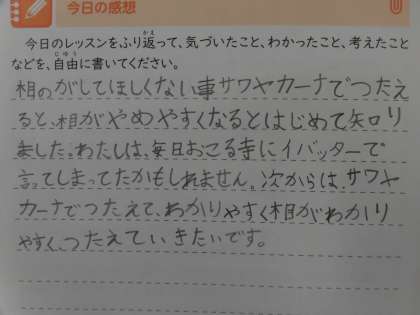 今日の感想
今日のレッスンをふり返って、気づいたこと、わかったこと、考えたこと
などを、自由に書いてください。
相のがしてほしくない事サワヤカーナでつたえ
ると、相がやめやすくなるとはじめて知り
ました。わたしは、毎日おこる寺にイバッターで
言ってしまってたかもしれません。次からは、サワヤ
カーナでつたえて、わかりやすく相がわかり
やすく、つたえていきたいです。